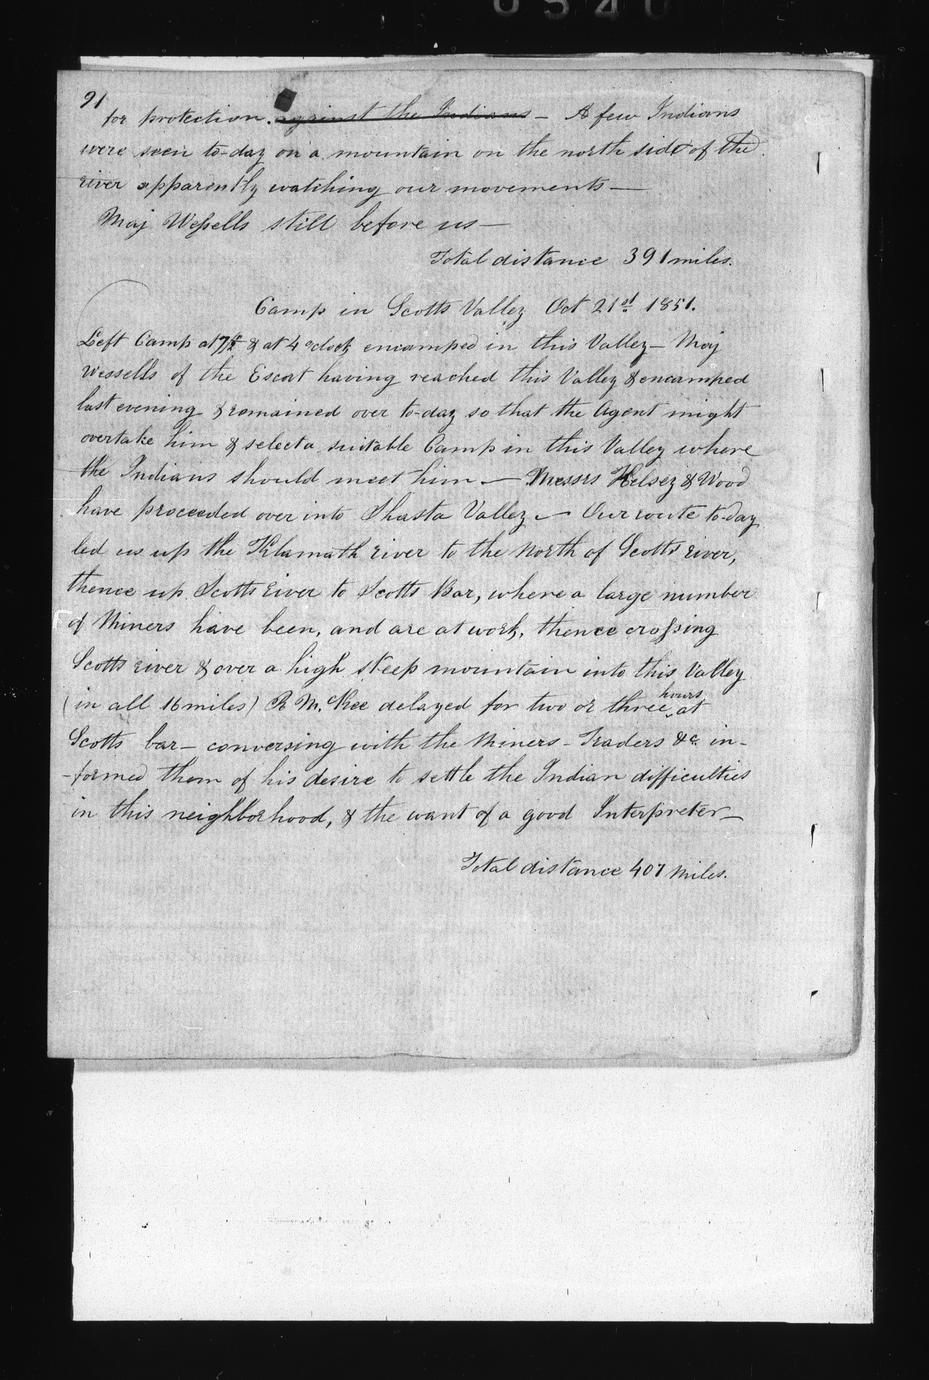 0540
91
for protection. against the Indians – A few Indians
were seen to-day on a mountain on the north side of the
river apparently watching our movements —
Maj Wessells still before us —
Total distance 391 miles.
Camp in Scotts Valley Oct 21st 1851.
Left Camp at 7½ & at 4 oclock encamped in this Valley – Maj
Wessells of the Escort having reached this Valley & encamped
last evening & remained over to-day so that the Agent might
overtake him & select a suitable Camp in this Valley where
the Indians should meet him. — Messrs Kelsey & Wood
have proceeded over into Shasta Valley — Our route to-day
led us up the Klamath river to the North of Scotts river,
thence up Scotts river to Scotts Bar, where a large number
of Miners have been, and are at work, thence crossing
Scotts river & over a high steep mountain into this Valley
(in all 16 miles) R. McKee delayed for two or three hours at
Scotts bar – conversing with the Miners – Traders &c. in-
-formed them of his desire to settle the Indian difficulties
in this neighborhood, & the want of a good Interpreter —
Total distance 407 miles.